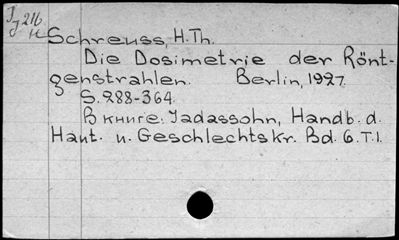 Ig 216
Schreuss, H.Th.
Die Dosimetrie der Rönt-
genstrahlen. Berlin, 1927.
S. 288-364
В книге: Jadassohn, Handb. d.
Haut. u. Geschlechtskr. Bd. 6. T. 1.